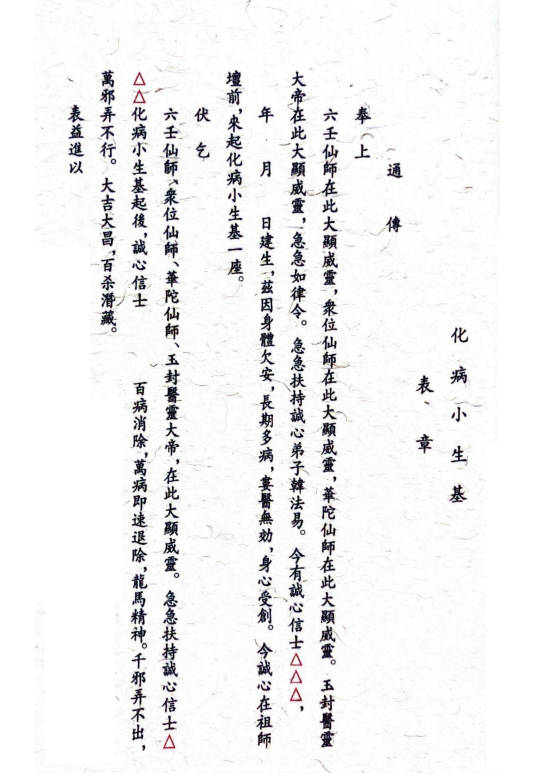 化病小生基
表章
通傳
奉上
六壬仙師在此大顯威靈,衆位仙師在此大顯威靈,華陀仙師在此大顯威靈。玉封醫靈
大帝在此大顯威靈,急急如律令。急急扶持誠心弟子韓法易。今有誠心信士△△△,
年 月 日建生,茲因身體欠安,長期多病,婁醫無効,身心受創。今誠心在祖師
壇前,來起化病小生基一座。
伏乞
六壬仙師、衆位仙師、華陀仙師、玉封醫靈大帝,在此大顯威靈。急急扶持誠心信士△
△△化病小生基起後,誠心信士 百病消除,萬病即速退除,龍馬精神。千邪弄不出,
萬邪弄不行。大吉大昌,百杀潛藏。
表益進以